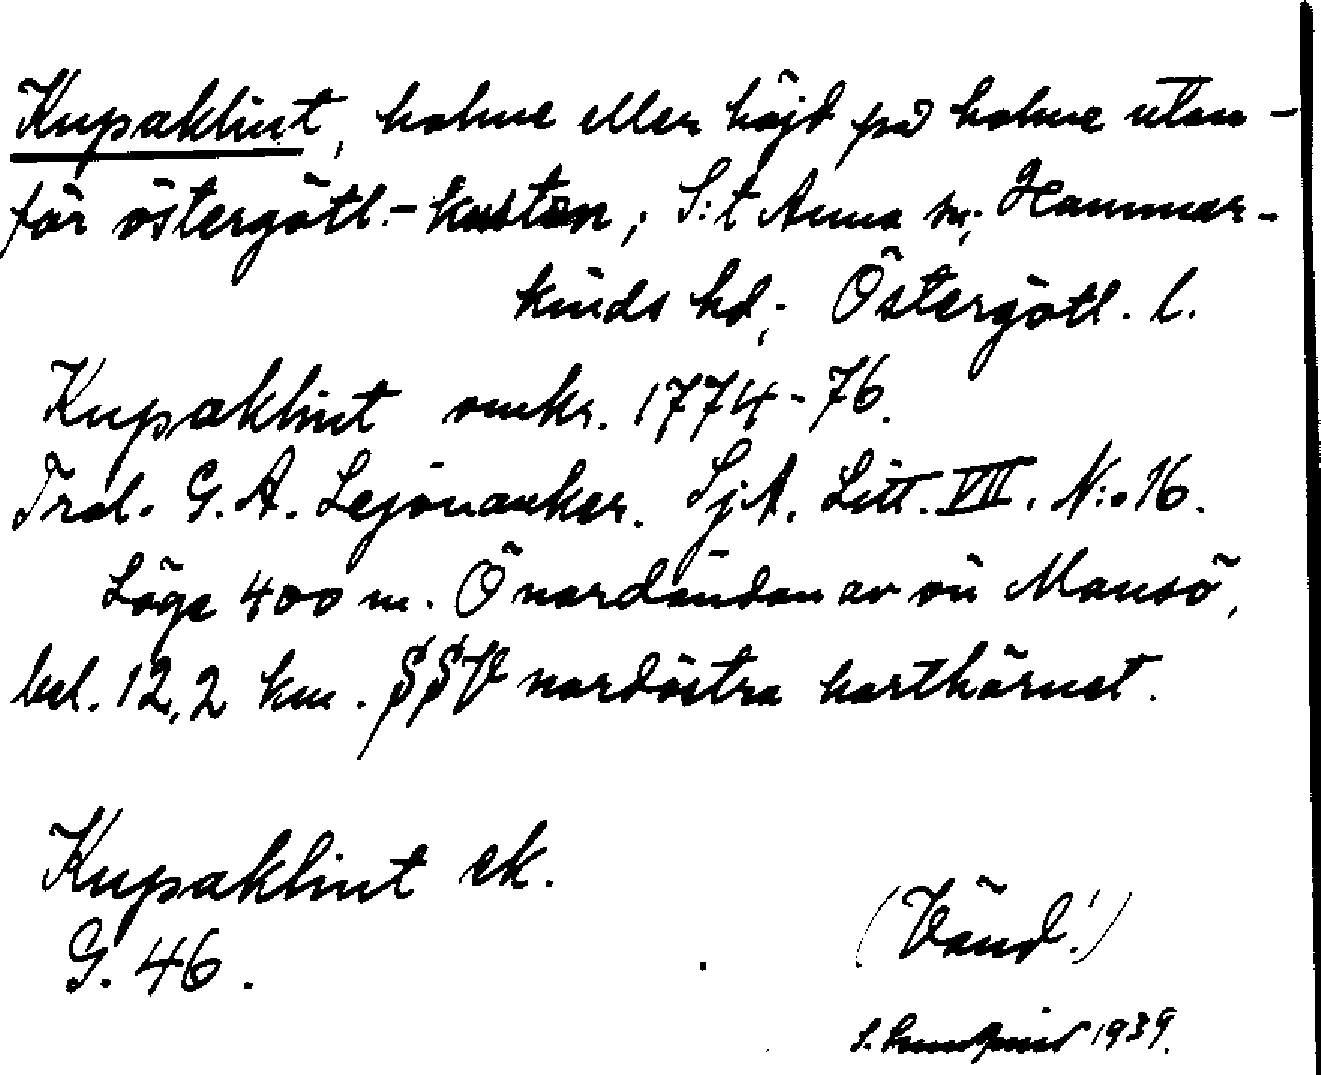 Kupaklint, holme eller höjd på holme utan-
för östergötl.-kusten; S:t Anna sn; Hammar-
kinds hd; Östergötl. l.
Kupaklint omkr. 1774-76.
Trol. G. A. Lejonanker. SjA. Litt. VII. N:o 16.
Läge 400 m. Ö nordändan av ön Mansö,
bel. 12,2 km. SSV nordöstra karthörnet.
Kupaklint ek.
G. 46.
(Vänd!)
S. 1939.